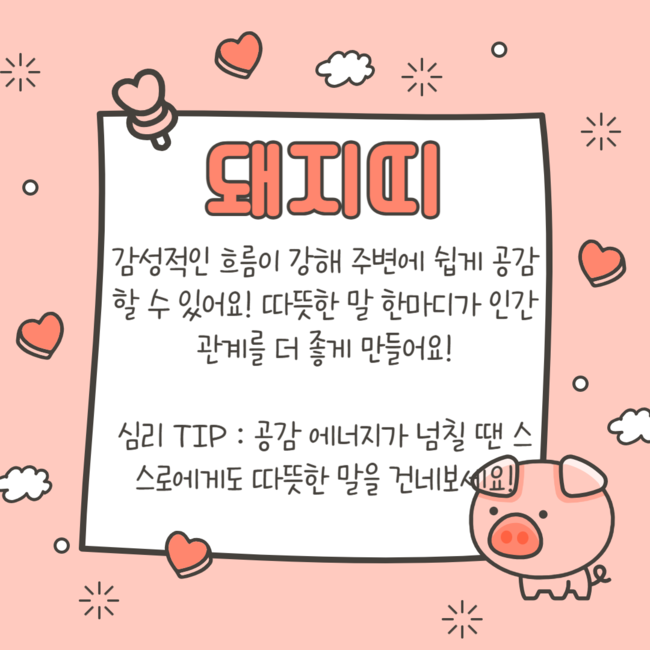 돼지띠
감성적인 흐름이 강해 주변에 쉽게 공감
할 수 있어요! 따뜻한 말 한마디가 인간
관계를 더 좋게 만들어요!
심리 TIP : 공감 에너지가 넘칠 땐 스
스로에게도 따뜻한 말을 건네보세요!